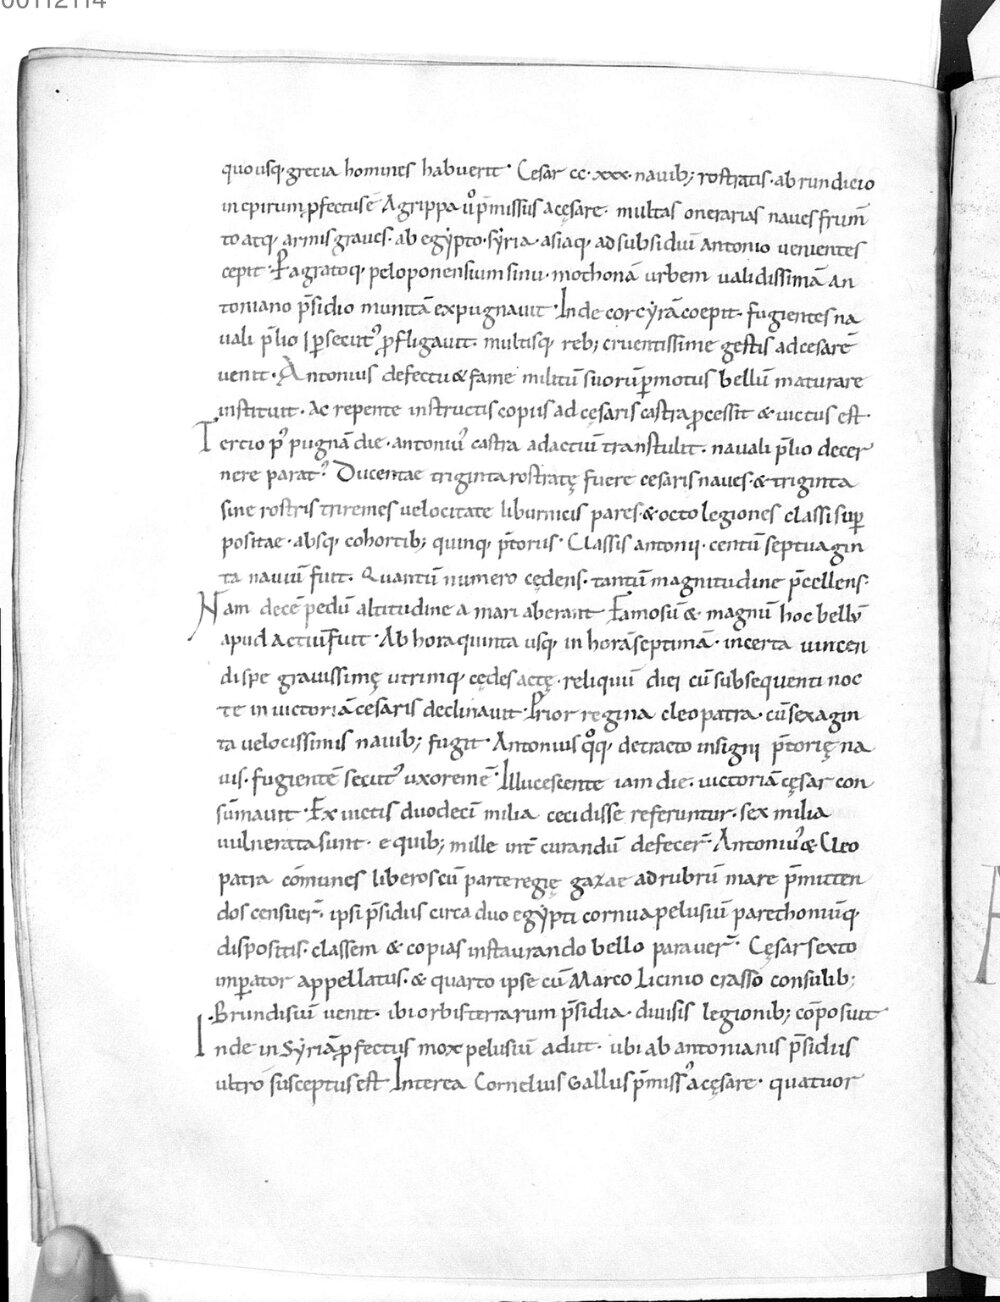 00112114
quousq; grecia homines habuerit. Cesar cc.xxx. nauib; rostratis. abrundicio
in epirum ꝓfectus ē Agrippa u° p̄missus a cęsare. multas onerarias naues frum̄
to atq; armis graues. ab egẏpto. sẏria. asiaq; ad subsidiū Antonio uenientes
cepit. Pagratoq; peloponensium sinu. mothonā urbem ualidissimā an
toniano p̄sidio munitā expugnauit. Inde corcẏrā coepit. fugientes na
uali p̄lio ꝑsecut᾿ ꝓfligauit. multisq; reb; cruentissime gestis ad cesarē
uenit. Antonius defectu & fame militū suorū ꝑmotus bellū maturare
instituit. Ac repente instructis copiis ad cęsaris castra ꝓcessit & uictus est.
Tercio p᾿ pugnā die. antoniu᾿ castra ad actiū transtulit. nauali p̄lio decer
nere parat᾿. Ducentae triginta rostratę fuere cesaris naues. & triginta
sine rostris triremes uelocitate liburnicis pares. & octo legiones classi suꝑ
positae. absq; cohortib; quinq; p̄toriis. Classis antonij. centū septuagin
ta nauiū fuit. Quantū numero cędens. tantū magnitudine p̄cellens.
Nam decē pedū altitudine a mari aberant Famosū & magnū hoc bellū
apud Actiū fuit. Ab hora quinta usq; in horā septimā. incerta uincen
di spe grauissimę utrimq; cędes actę. reliquū diei cū subsequenti noc
te in uictoriā cesaris declinauit. Prior regina cleopatra. cū sexagin
ta uelocissimis nauib; fugit. Antonius qͦq; detracto insigni p̄torię na
uis. fugientē secut᾿ uxorem ē. Illucescente iam die. uictoriā cęsar con
sūmauit. Ex uictis duodecī milia cecidisse referuntur. sex milia
uulnerata sunt. e quib; mille int̄ curandū defecer̄. Antoniu᾿ & Cleo
patra cōmunes liberos cū parte regię gazae ad rubrū mare p̄mitten
dos censuer̄. ipsi p̄sidiis circa duo egẏpti cornua pelusiū parethoniūq;
dispositis. classem & copias instaurando bello parauer̄. Cęsar sexto
imꝑator appellatus. & quarto ipse cū Marco Licinio crasso consulib;
Brundisiū uenit. ibi orbis terrarum p̄sidia. diuisis legionib; cōposuit
Inde in Sẏriā ꝓfectus mox pelusiū adiit. ubi ab antonianis p̄sidiis
ultro susceptus est Interea Cornelius Gallus p̄miss᾿ a cęsare. quatuor